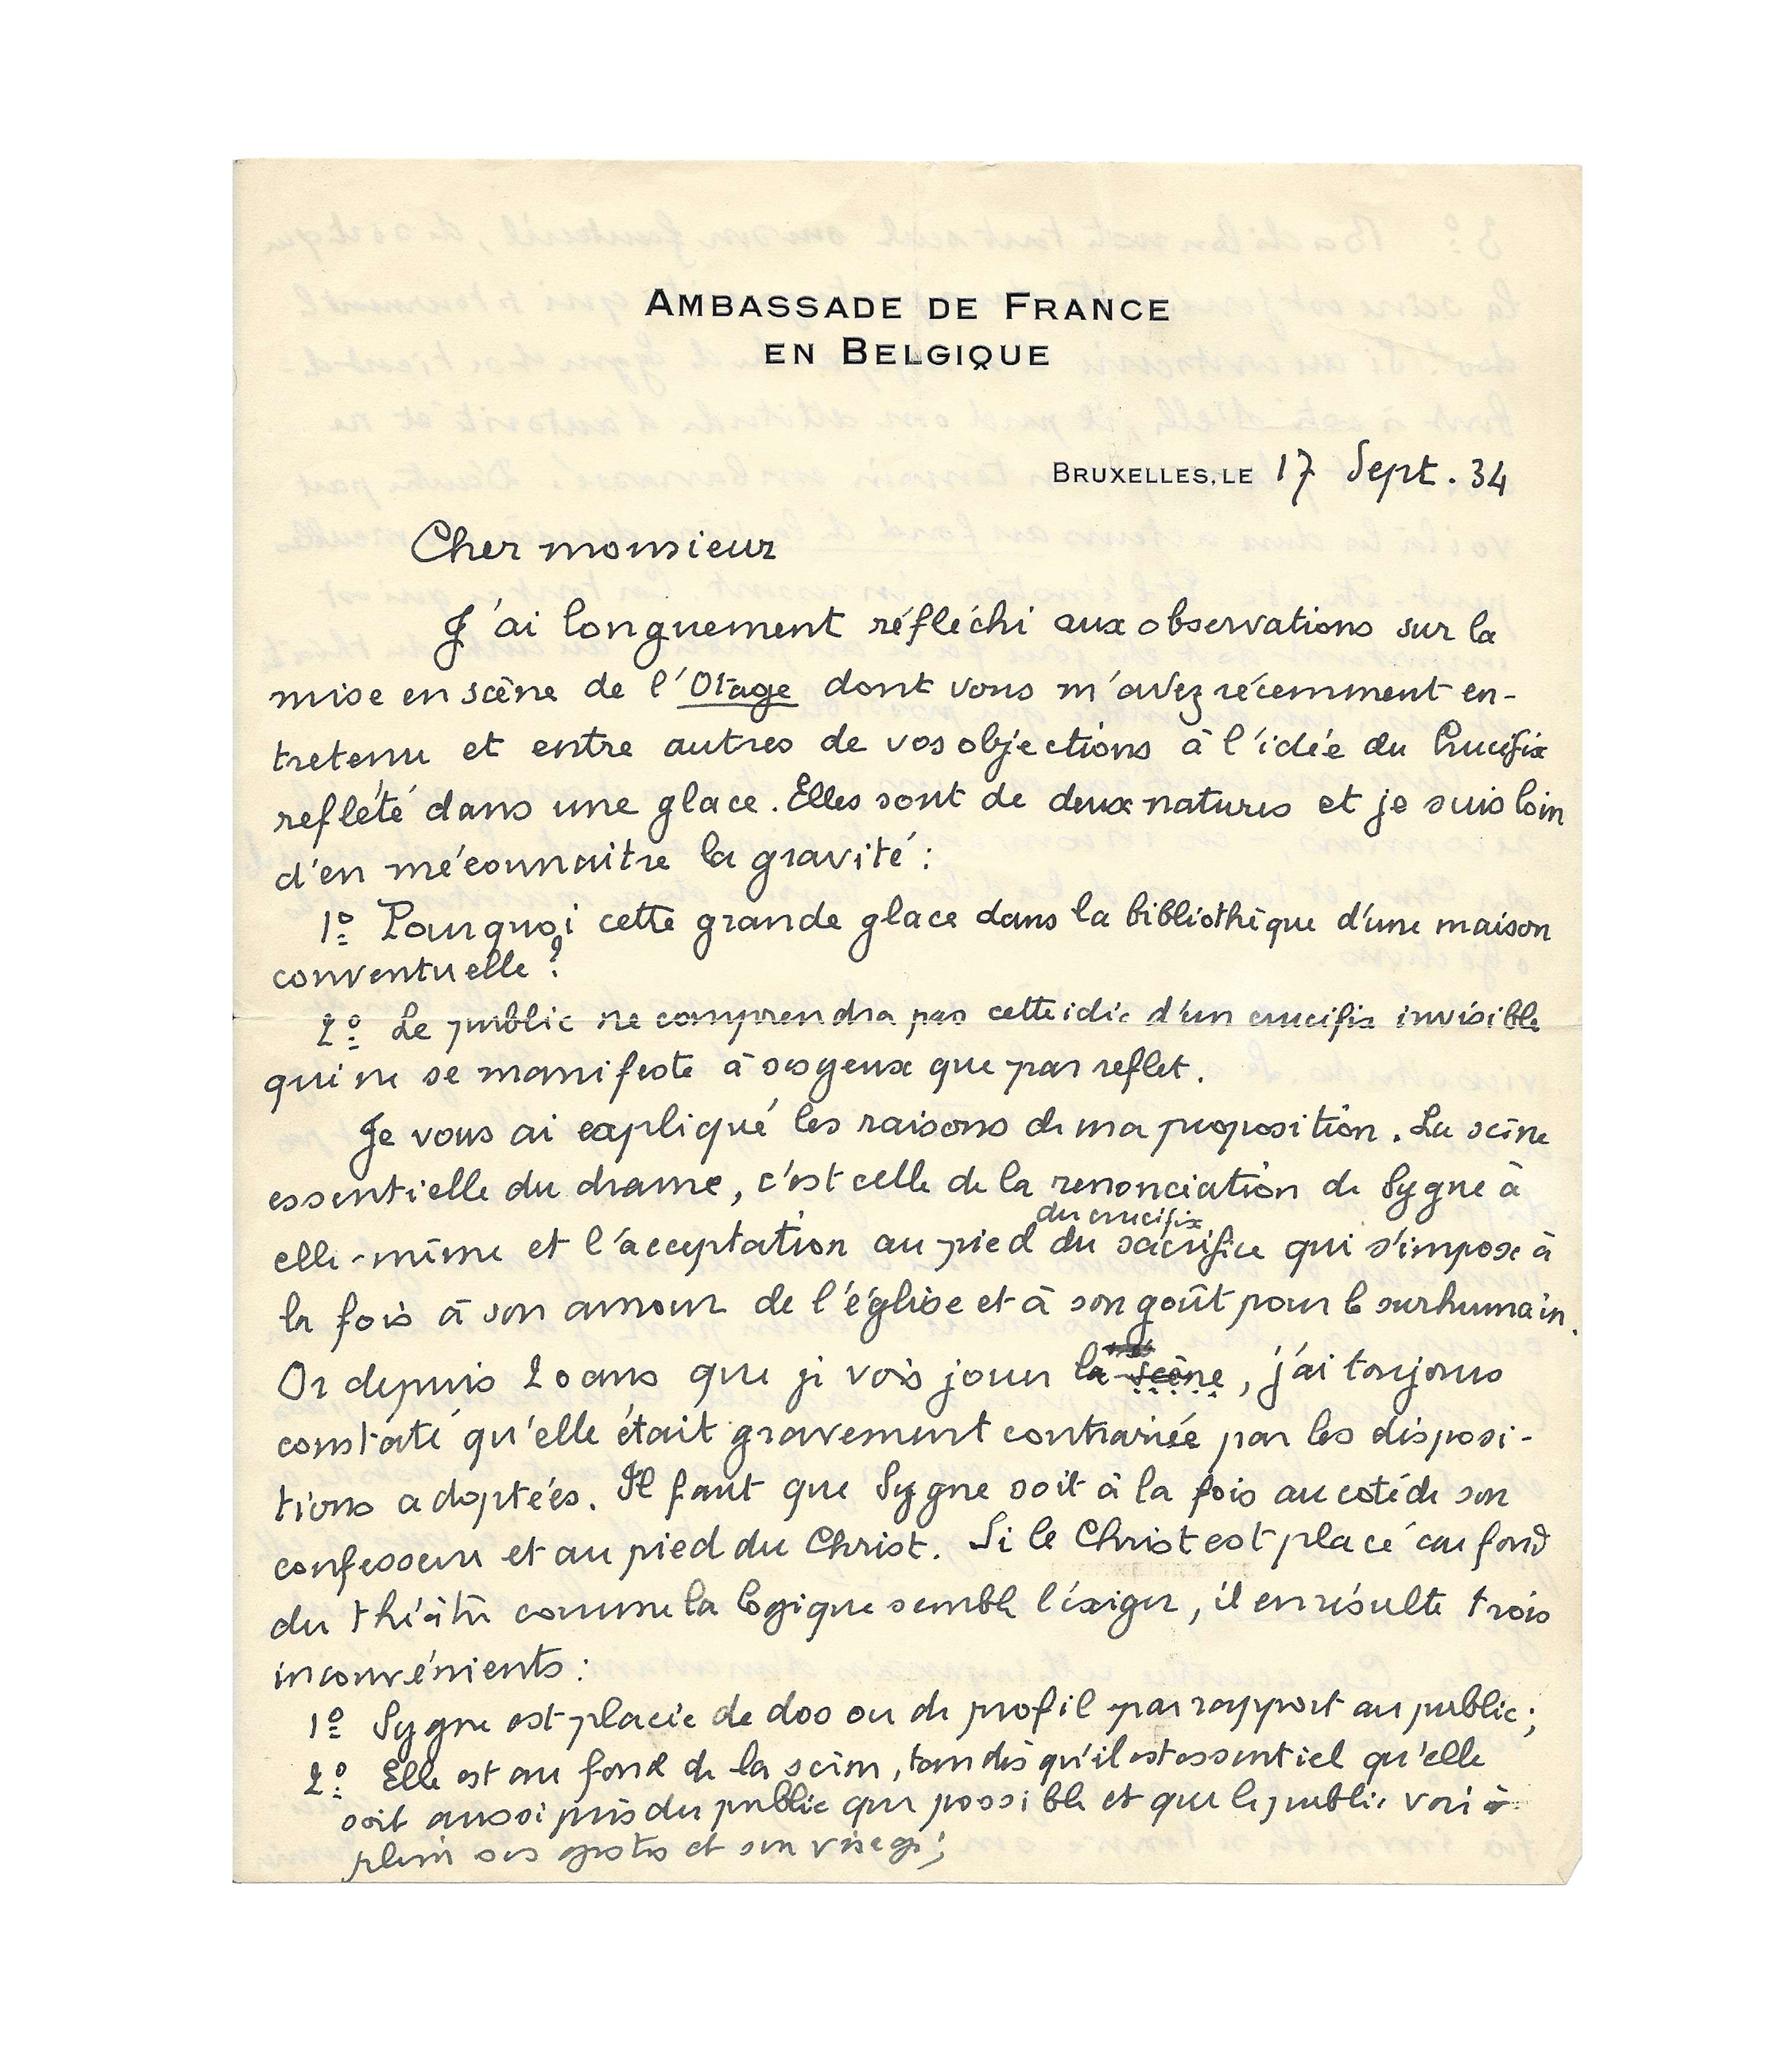 AMBASSADE DE FRANCE
EN BELGIQUE
BRUXELLES, LE 17 Sept. 34
Cher monsieur
J'ai longuement réfléchi aux observations sur la
mise en scène de l'Otage dont vous m'avez récemment en-
tretenu et entre autres de vos objections à l'idée du Crucifix
refleté dans une glace. Elles sont de deux natures et je suis loin
d'en méconnaitre la gravité :
1º Pourquoi cette grande glace dans la bibliothèque d'une maison
conventuelle ?
2º Le public ne comprendra pas cette idée d'un crucifix invisible
qui ne se manifeste à ses yeux que par reflet.
Je vous ai expliqué les raisons de ma proposition. La scène
essentielle du drame, c'est celle de la renonciation de Sygne à
du crucifix
elle-même et l'acceptation au pied du sacrifice qui s'impose à
la fois à son amour de l'église et à son goût pour le surhumain.
Or depuis 20 ans que je vois jouer la scène, j'ai toujours
constaté qu'elle était gravement contrariée par les disposi-
tions adoptées. Il faut que Sygne soit à la fois au coté de son
confesseur et au pied du Christ. Si le Christ est placé au fond
du théâtre comme la logique semble l'éxiger, il en résulte trois
inconvénients :
1º Sygne est placée de dos ou de profil par rapport au public ;
2º Elle est au fond de la scène, tandis qu'il est essentiel qu'elle
soit aussi près du public que possible et que le public voie à
plein ses gestes et son visage ;